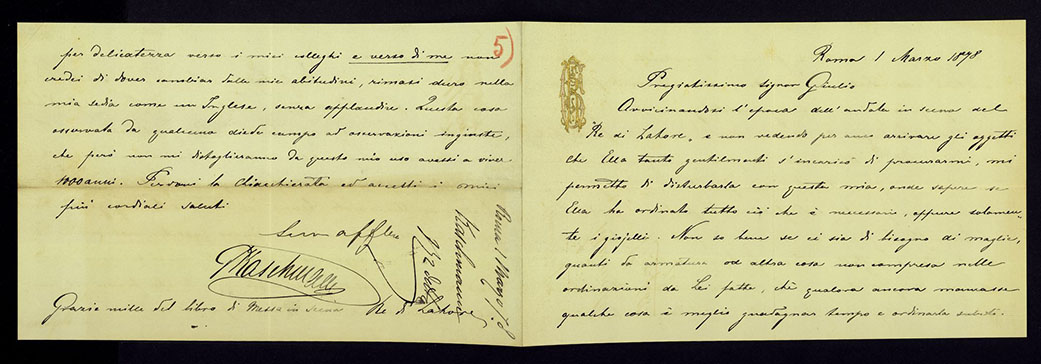 Roma 1 Marzo 1878
Pregiatissimo Signor Giulio
Avvicinandosi l'epoca dell'andata in scena del
Re di Lahore, e non vedendo per anco arrivare gli oggetti
che Ella tanto gentilmente s'incaricò di procurarmi, mi
permetto di disturbarla con questa mia, onde sapere se
Ella ha ordinato tutto ciò che è necessario, oppure solamen-
te i giojelli. Non so bene se ci sia di bisogno di maglie,
guanti da armatura od altra cosa non compresa nelle
ordinazioni da Lei fatte, chè qualora ancora mancasse
qualche cosa è meglio guadagnar tempo e ordinarla subito.
5)
per delicatezza verso i miei colleghi e verso di me non
credei di dover cambiar dalle mie abitudini, rimasi duro nella
mia sedia come un Inglese, senza applaudire. Questa cosa
osservata da qualcuno diede campo ad osservazioni ingiuste,
che però non mi distoglieranno da questo mio uso avessi a viver
1000 anni. Perdoni la chiacchierata ed accetti i miei
più cordiali saluti
Suo aff
Kaschmann
Grazie mille del libro di Messa in scena
Re di Lahore.
Roma 1 Marzo 78
Kaschmann